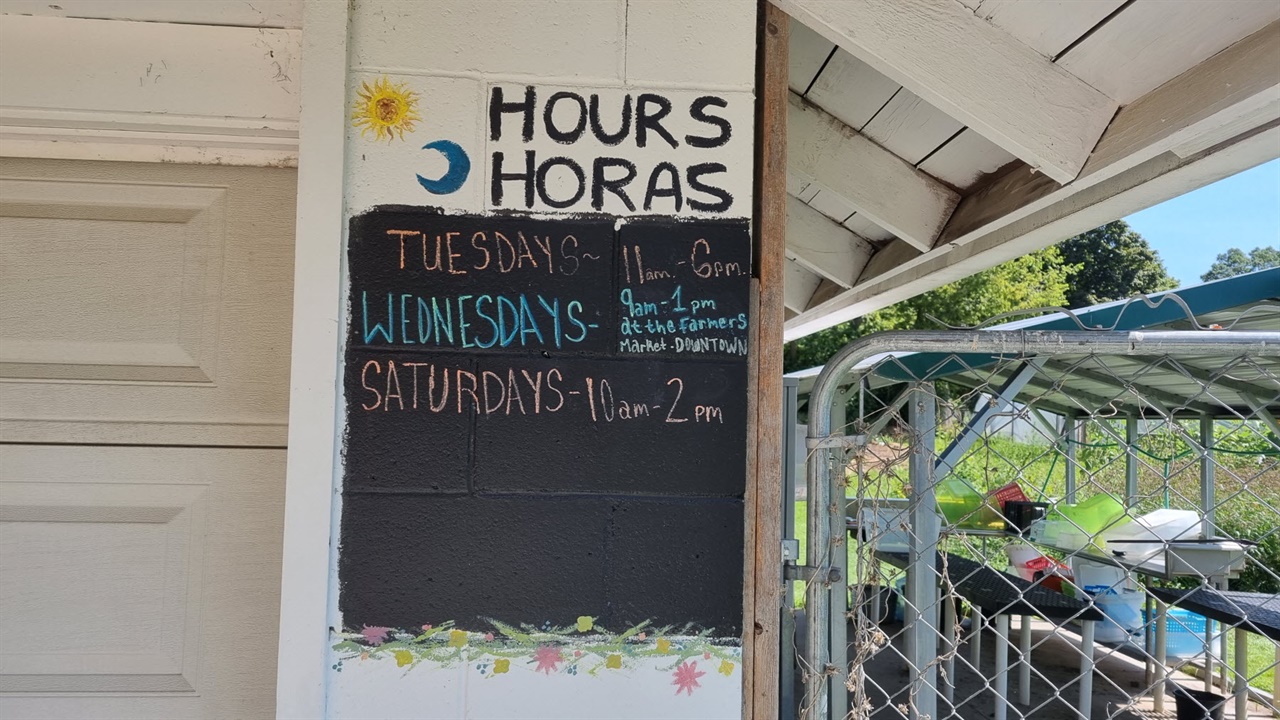 HOURS
HORAS
TUESDAYS~ 11am.-6pm.
WEDNESDAYS- 9am-1pm
at the farmers
Market-DOWNTOWN
SATURDAYS-10am-2pm